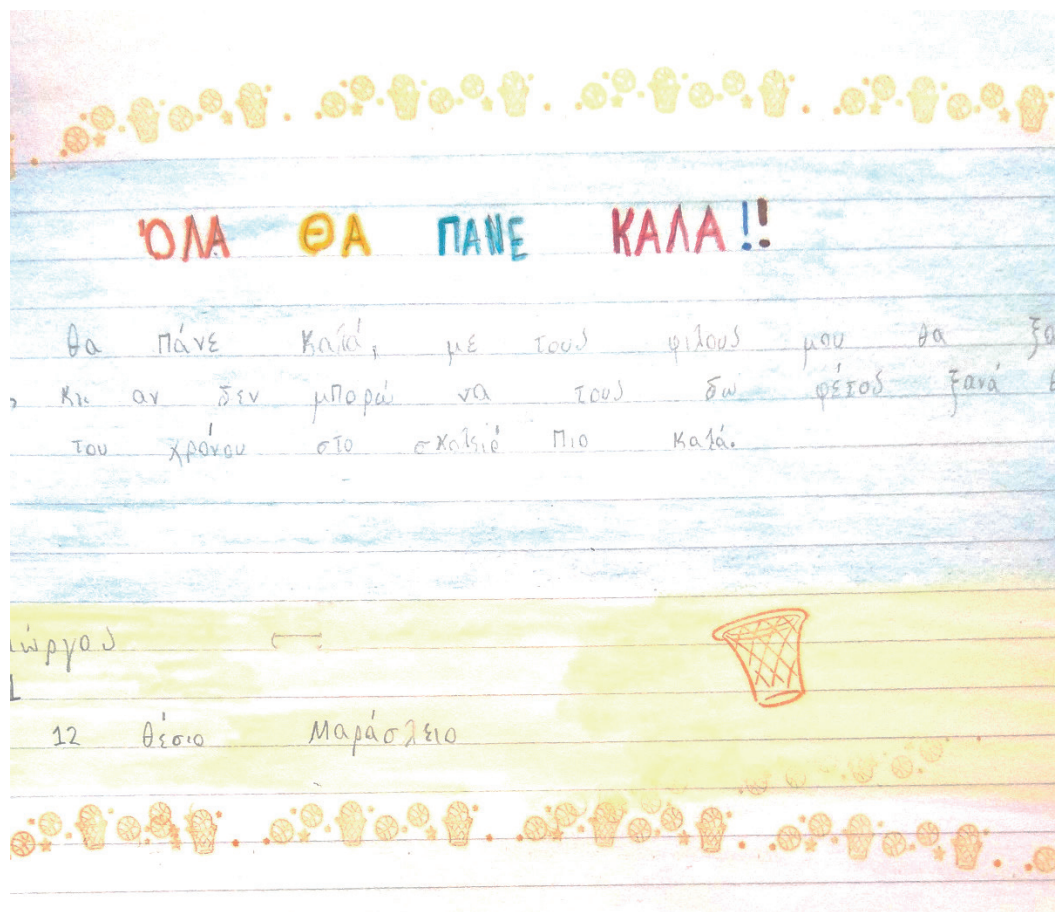 ΌΛΑ ΘΑ ΠΑΝΕ ΚΑΛΑ!!
θα πάνε καλά, με τους φιλους μου θα ξα
κι αν δεν μπορώ να τους δω φέτος ξανά θ
του χρόνου στο σχολείο πιο καλά.
ιώργος
1
12 θέσιο Μαράσλειο